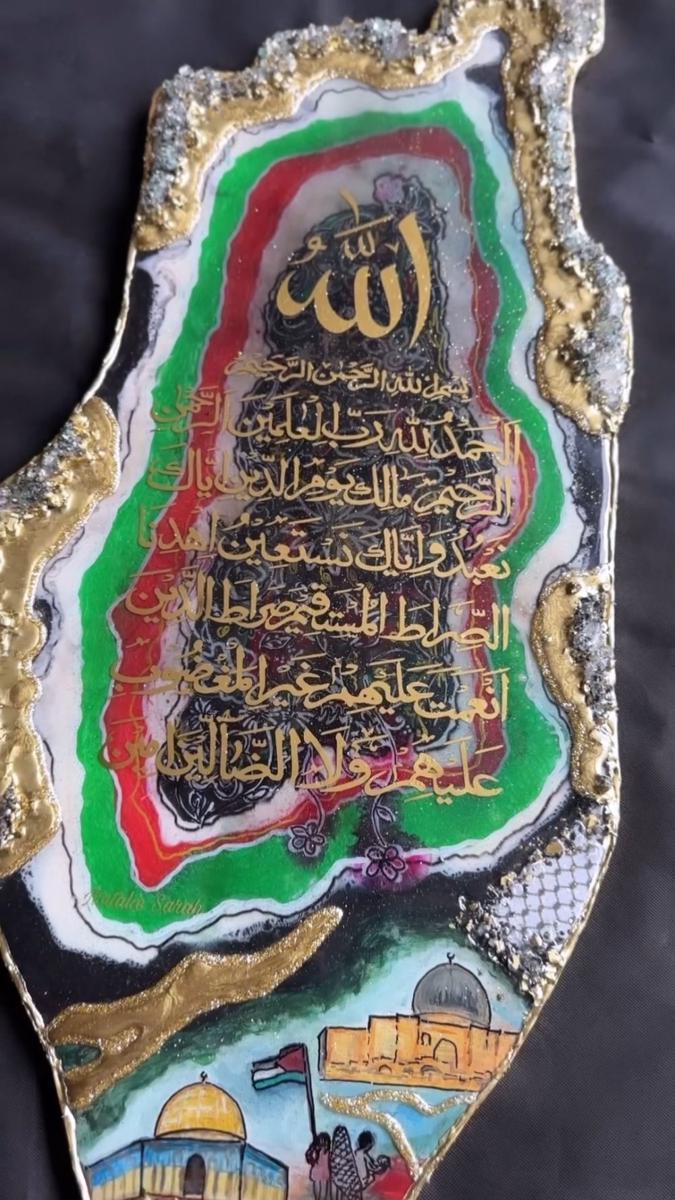 الله
بسم الله الرحمن الرحيم
الحمد لله رب العامين الرحمن
الرحيم مالك يوم الدين اياك
نعبد واياك نستعين اهدنا
الصراط المستقيم صراط الذين
انعمت عليهم غير المغضوب
عليهم ولا الضالين امين
Sarah